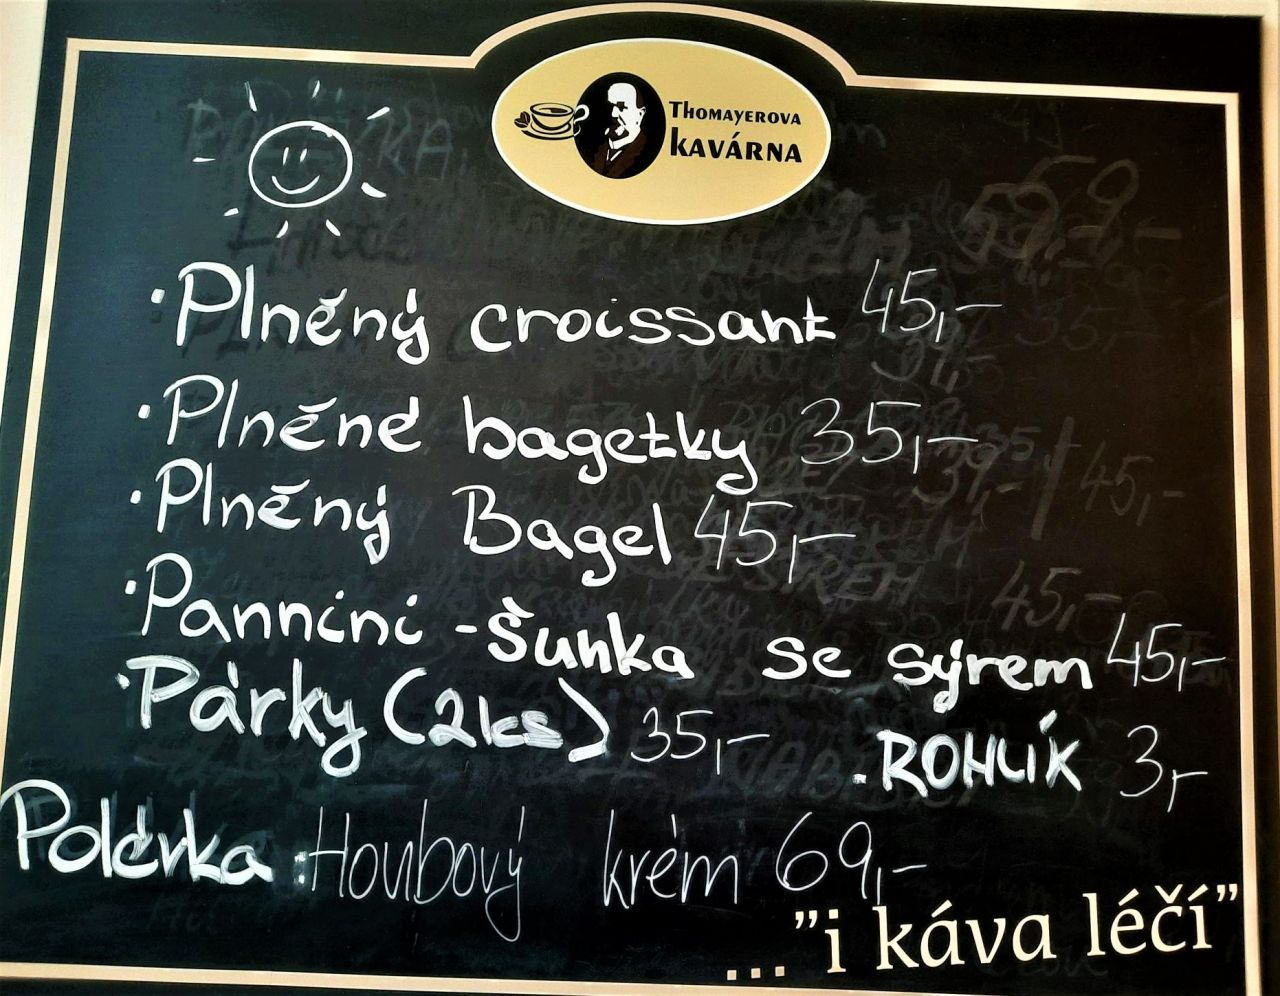 Thomayerova
kavárna
·Plněný croissant 45,-
·Plněné bagetky 35,-
·Plněný Bagel 45,-
·Pannini - Šunka se sýrem 45,-
·Párky (2ks) 35,- ·ROHLÍK 3,-
Polévka: Houbový krém 69,-
..."i káva léčí"